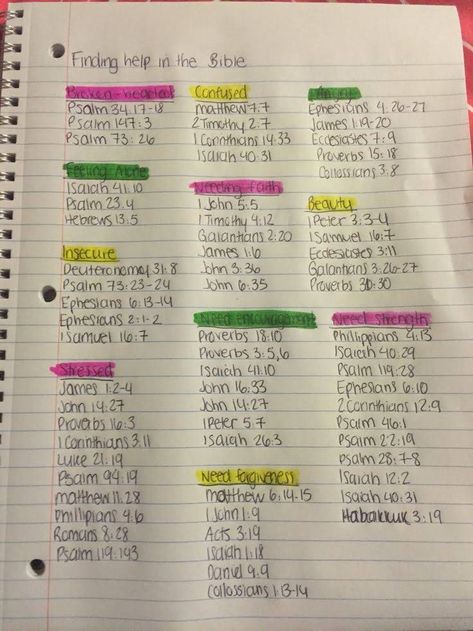 Finding help in the Bible
Broken-hearted
Psalm 34:17-18
Psalm 147:3
Psalm 73:26
Feeling Alone
Isaiah 41:10
Psalm 23:4
Hebrews 13:5
Insecure
Deuteronomy 31:8
Psalm 73:23-24
Ephesians 6:13-14
Ephesians 2:1-2
1 Samuel 16:7
Stressed
James 1:2-4
John 14:27
Proverbs 16:3
1 Corinthians 3:11
Luke 21:19
Psalm 94:19
Matthew 11:28
Phillipians 4:6
Romans 8:28
Psalm 119:143
Confused
Matthew 7:7
2 Timothy 2:7
1 Corinthians 14:33
Isaiah 40:31
Needing faith
1 John 5:5
1 Timothy 4:12
Galantians 2:20
James 1:6
John 3:36
John 6:35
Need encouragement
Proverbs 18:10
Proverbs 3:5,6
Isaiah 41:10
John 16:33
John 14:27
1 Peter 5:7
Isaiah 26:3
Need forgiveness
Matthew 6:14-15
1 John 1:9
Acts 3:19
Isaiah 1:18
Daniel 9:9
Collossians 1:13-14
Angry
Ephesians 4:26-27
James 1:19-20
Ecclesiastes 7:9
Proverbs 15:18
Collossians 3:8
Beauty
1 Peter 3:3-4
1 Samuel 16:7
Ecclesiastes 3:11
Galantians 3:26-27
Proverbs 31:30
Need Strength
Phillippians 4:13
Isaiah 40:29
Psalm 119:28
Ephesians 6:10
2 Corinthians 12:9
Psalm 46:1
Psalm 22:19
Psalm 28:7-8
Isaiah 12:2
Isaiah 40:31
Habakkuk 3:19